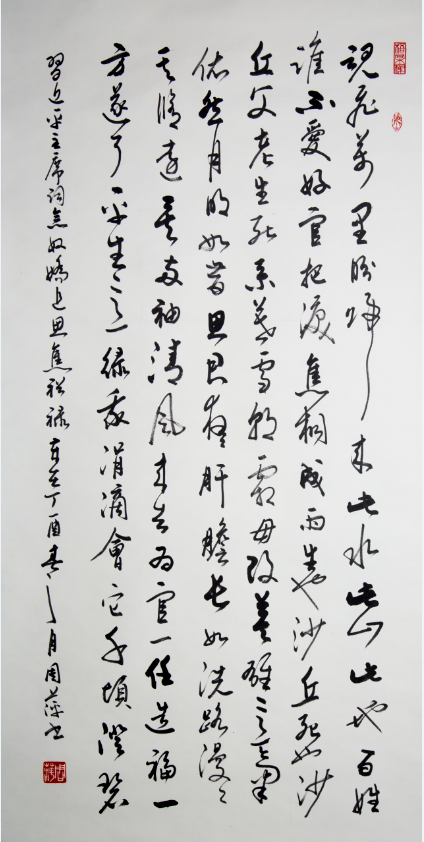 魂飛萬里盼歸来此水此山此地百姓
誰不愛好官把淚焦桐成雨生也沙丘死也沙
丘父老生死系暮雪朝霜毋改英雄意氣
依然月明如昔思君夜夜肝膽長如洗路漫漫
其脩遠矣两袖清風来去为官一任造福一
方遂了平生意緑我涓滴會它千頃澄碧
習近平主席詞念奴嬌追思焦裕禄 歲在丁酉春月周萍书